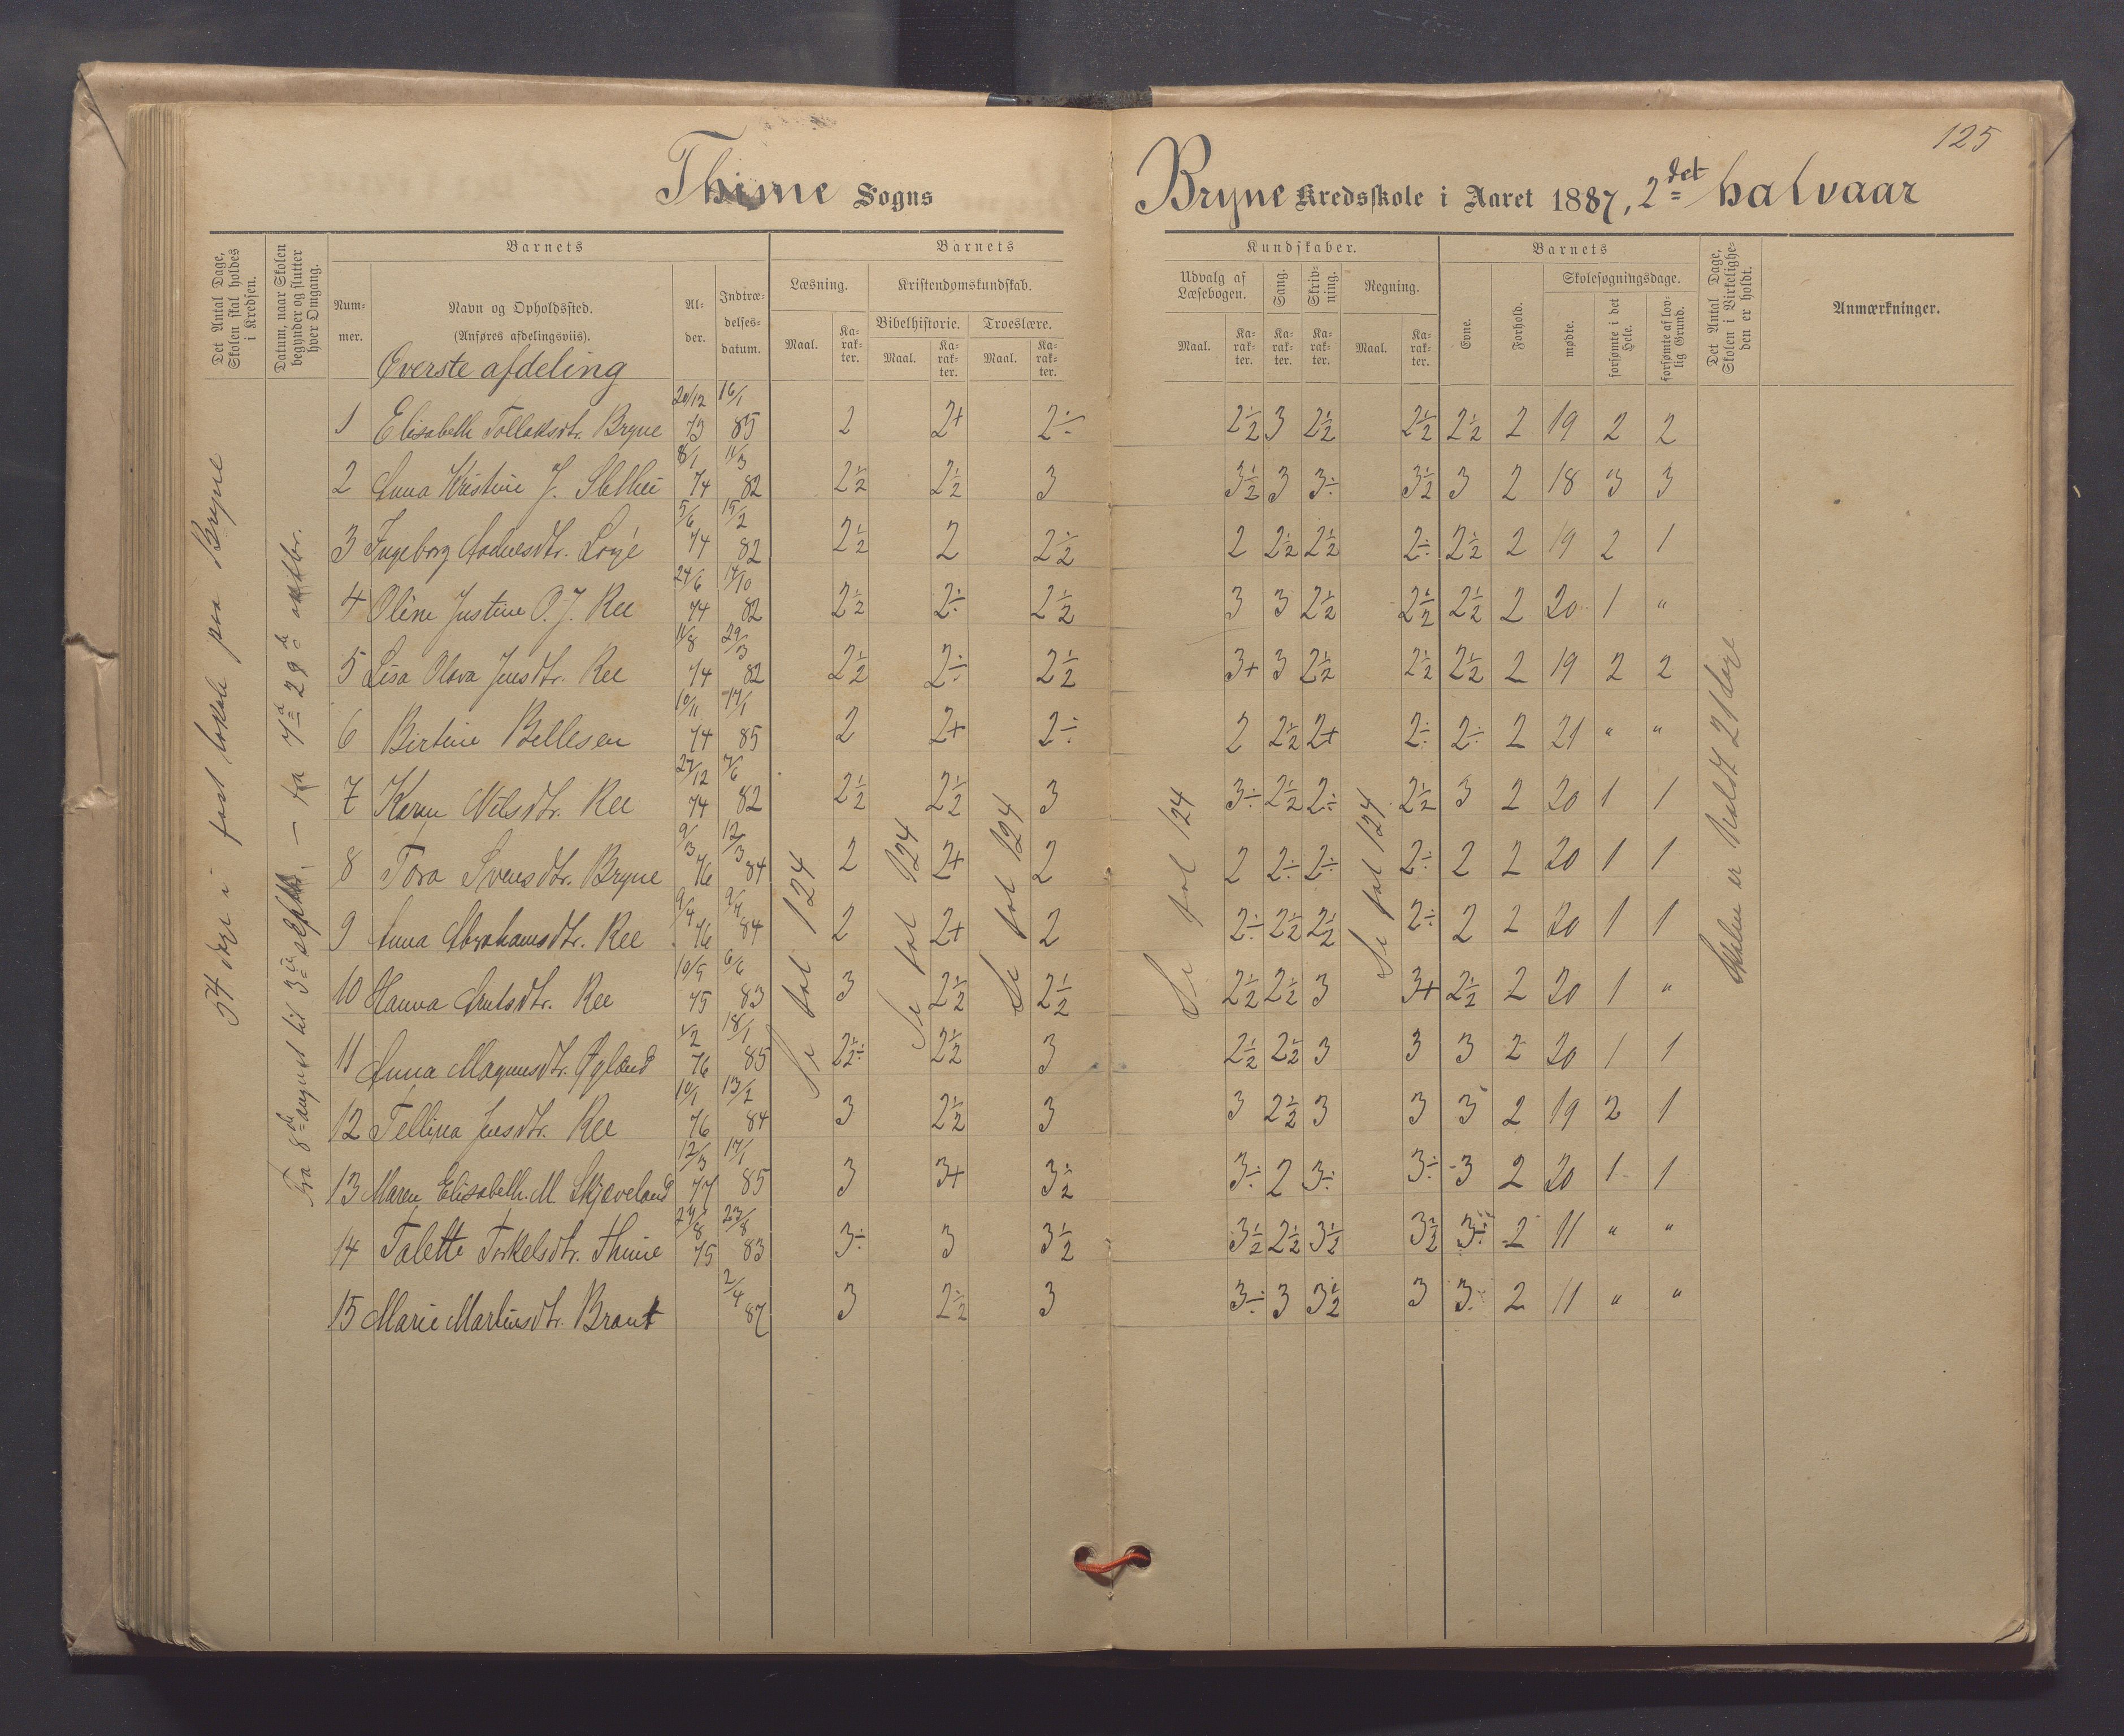 125
Thime Sogns
Bryne Kredsskole i Aaret 1887, 2det halvaar
Det Antal Dage, Skolen skal holdes i Kredsen.
Datum, naar Skolen begynder og slutter hver Omgang.
Barnets
Num-mer.
Navn og Opholdssted.
(Anføres afdelingsviis).
Al-der.
Indtræ-delses-datum.
Barnets
Læsning.
Kristendomskundskab.
Bibelhistorie.
Troeslære.
Maal.
Ka-rak-ter.
Maal.
Ka-rak-ter.
Maal.
Ka-rak-ter.
Kundskaber.
Udvalg af Læsebogen.
Sang.
Skriv-ning.
Regning.
Maal.
Ka-rak-ter.
Ka-rak-ter.
Ka-rak-ter.
Maal.
Ka-rak-ter.
Barnets
Evne.
Forhold.
Skolesøgningsdage.
mødte.
forsømte i det Hele.
forsømte af lov-lig Grund.
Det Antal Dage, Skolen i Virkelighe-den er holdt.
Anmærkninger.
Øverste afdeling
54 dage i fast lokale paa Bryne
Fra 8de august til 3die septbr. — fra 7de 29de oktbr.
Se fol 124
Se fol 124
Se fol 124
Se fol 124
Se fol 124
Skolen er holdt 21 dage
1 Elisabeth Tollaksdtr. Bryne 20/12 73 16/1 85 2 2+ 2÷ 2½ 3 2½ 2½ 2½ 2 19 2 2
2 Anna Kristine J. 8/1 74 11/3 82 2½ 2½ 3 3½ 3 3÷ 3½ 3 2 18 3 3
3 Ingeborg Aadnesdtr. Løge 5/6 74 15/2 82 2½ 2 2½ 2 2½ 2½ 2÷ 2½ 2 19 2 1
4 Oline Justine O. J. Ree 24/6 74 14/10 82 2½ 2÷ 2½ 3 3 2½ 2½ 2½ 2 20 1 "
5 Lisa Olava Jensdtr. Ree 11/8 74 29/3 82 2½ 2÷ 2½ 3+ 3 2½ 2½ 2½ 2 19 2 2
6 Birtine Bellesen 10/11 74 17/1 85 2 2+ 2÷ 2 2½ 2+ 2÷ 2÷ 2 21 " "
7 Karen Nilsdtr. Ree 27/12 74 7/6 82 2½ 2½ 3 3÷ 2½ 2÷ 2½ 3 2 20 1 1
8 Tora Svensdtr. Bryne 9/3 76 12/3 84 2 2+ 2 2 2÷ 2÷ 2÷ 2 2 20 1 1
9 Anna Abrahamsdtr. Ree 9/4 76 9/4 84 2 2+ 2 2÷ 2½ 2½ 2÷ 2 2 20 1 1
10 Hanna Ree 10/9 75 6/6 83 3 2½ 2½ 2½ 2½ 3 3+ 2½ 2 20 1 "
11 Anna Magnusdtr. Øgland 1/2 76 18/1 85 2½÷ 2½ 3 2½ 2½ 3 3 3 2 20 1 1
12 Tellina Jensdtr. Ree 10/1 76 13/2 84 3 2½ 3 3 2½ 3 3 3 2 19 2 1
13 Maren Elisabeth M. Skjæveland 12/3 77 17/1 85 3 3+ 3½ 3÷ 2 3÷ 3÷ 3 2 20 1 1
14 Talette Torkelsdtr. Thime 24/8 75 23/8 83 3÷ 3 3½ 3½ 2½ 3½ 3½ 3÷ 2 11 " "
15 Marie Martinsdtr. Braut 2/4 87 3 2½ 3 3÷ 3 3½ 3 3 2 11 " "